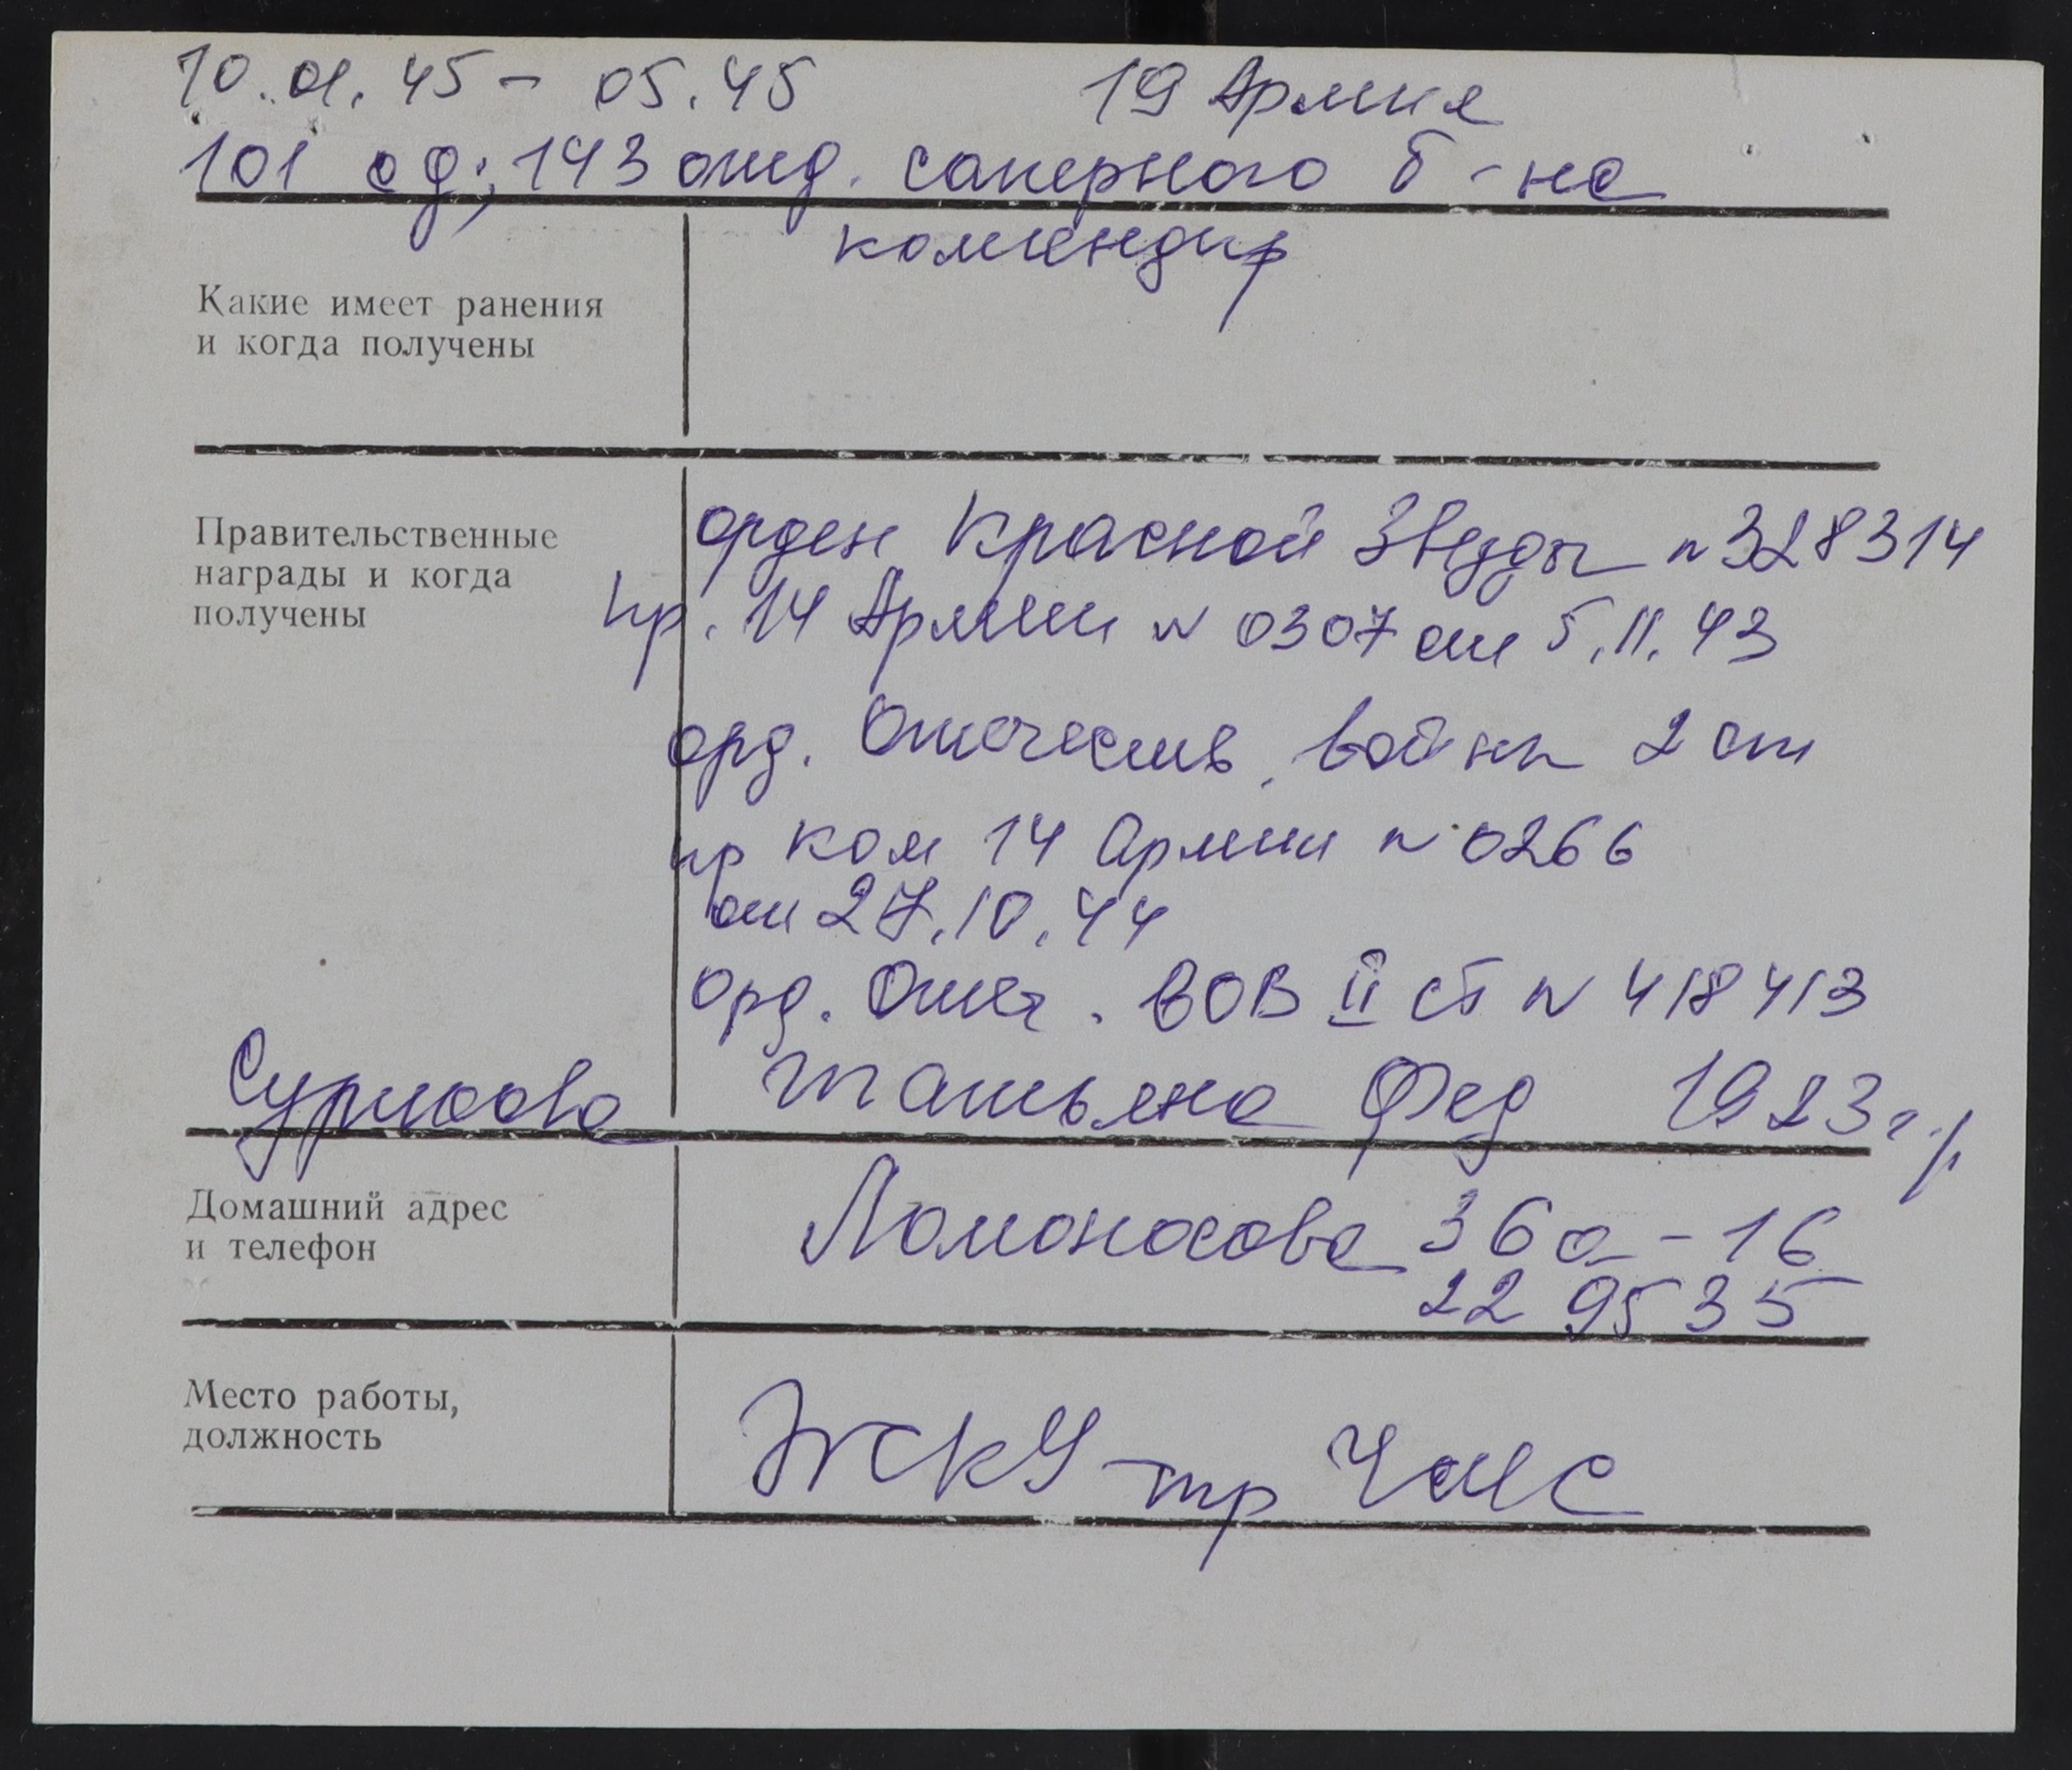 10.01.45 - 05.45 19 Армия
101 сд; 143 отд. саперного б-на
командир
Какие имеет ранения
и когда получены
Правительственные
награды и когда
получены
орден Красной Звезды N 328314
пр. 14 Армии N 0307 от 5.11.43
орд. Отечеств. войны 2 ст
пр ком 14 Армии N 0266
от 27.10.44
орд. Отеч. ВОВ II ст N 418413
Татьяна Фед 1923 г.р
Домашний адрес
и телефон
Ломоносова 36а-16
22 95 35
Место работы,
должность
ЖКУ тр